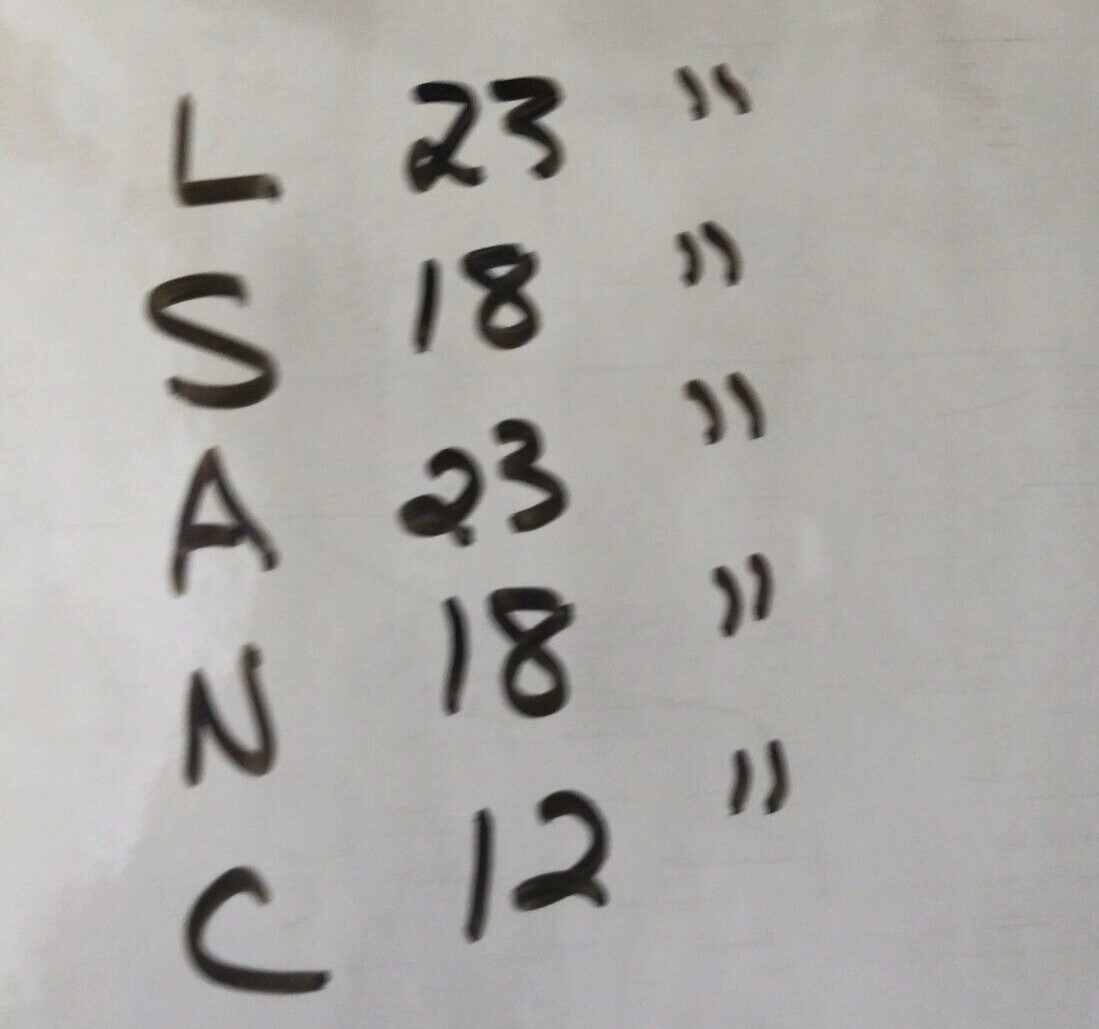 L 23 "
S 18 "
A 23 "
N 18 "
C 12 "